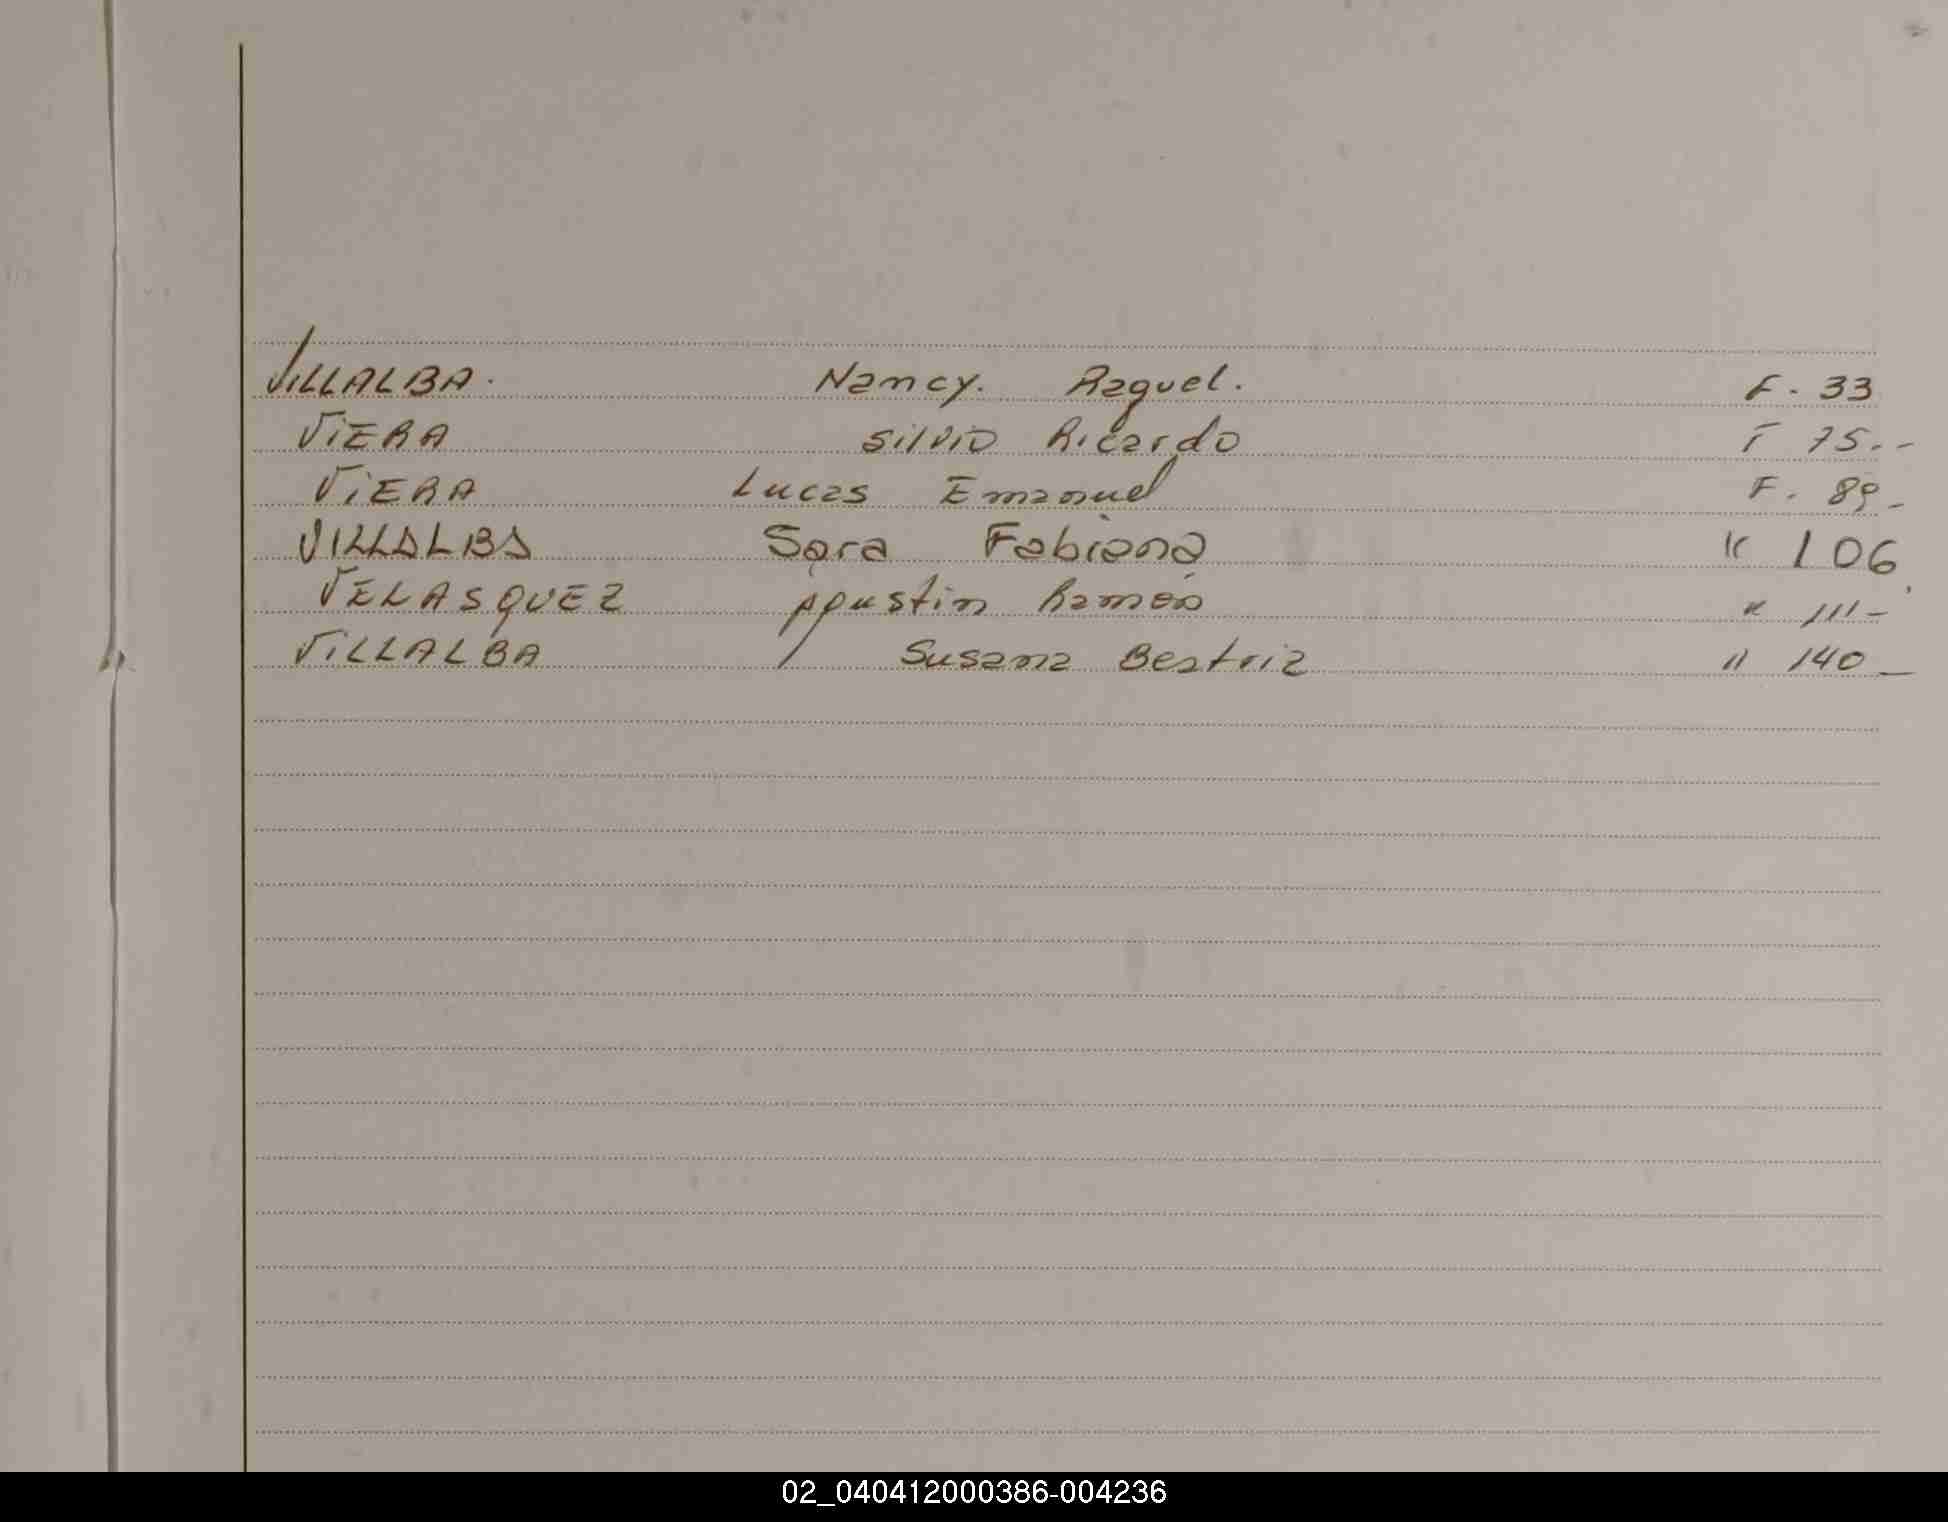 VILLALBA. Nancy. Raquel. F. 33
VIERA Silvio Ricardo F 75.-
VIERA Lucas Emanuel F. 89-
VILLALBA Sara Fabiana " 106
VELASQUEZ Agustin Ramón " 111-
VILLALBA Susana Beatriz " 140-
02_040412000386-004236